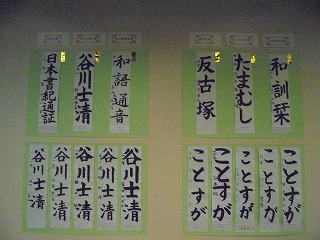 和訓栞
たまむし
反古塚
和語通音
谷川士清
日本書紀通証
ことすが
ことすが
ことすが
ことすが
ことすが
谷川士清
谷川士清
谷川士清
谷川士清
谷川士清